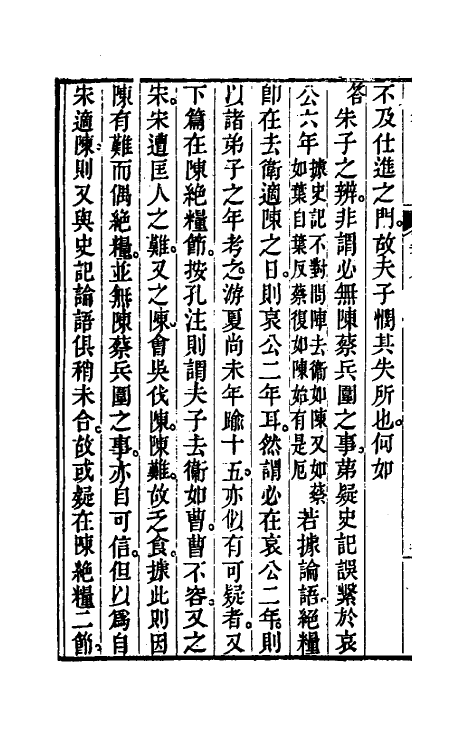 不及仕進之門。故夫子憫其失所也。何如
答朱子之辨。非謂必無陳蔡兵圍之事。第疑史記誤繫於哀
公六年據史記不對問陣去衛如陳又如蔡如葉自葉反蔡復如陳始有是厄若據論語。絕糧
卽在去衛適陳之日。則哀公二年耳。然謂必在哀公二年。則
以諸弟子之年考之。游夏尚未年踰十五。亦似有可疑者。又
下篇在陳絕糧節。按孔注則謂夫子去衞如曹。曹不容。又之
宋。宋遭匡人之難。又之陳。會吳伐陳。陳難。故乏食。據此則因
陳有難而偶絕糧。並無陳蔡兵圍之事。亦自可信。但以爲自
宋適陳。則又與史記論語俱稍未合。故或疑在陳絕糧二節。